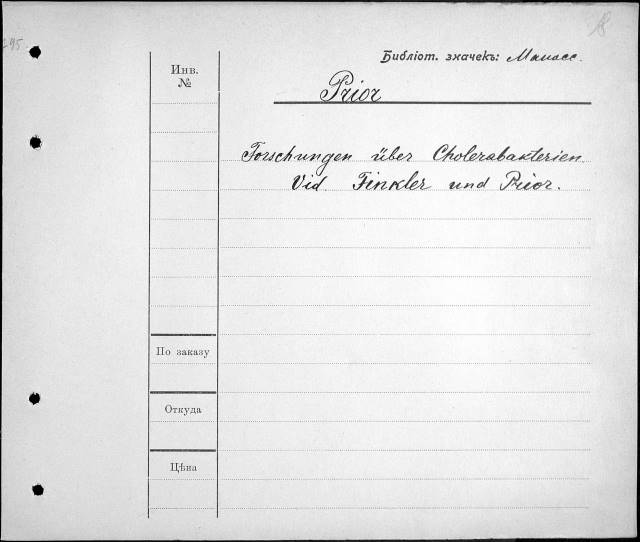 Библіот. значекъ: Манасс.
Инв.
№
Prior
Forschungen über Cholerabakterien
Vid. Finkler und Prior.
По заказу
Откуда
Цѣна